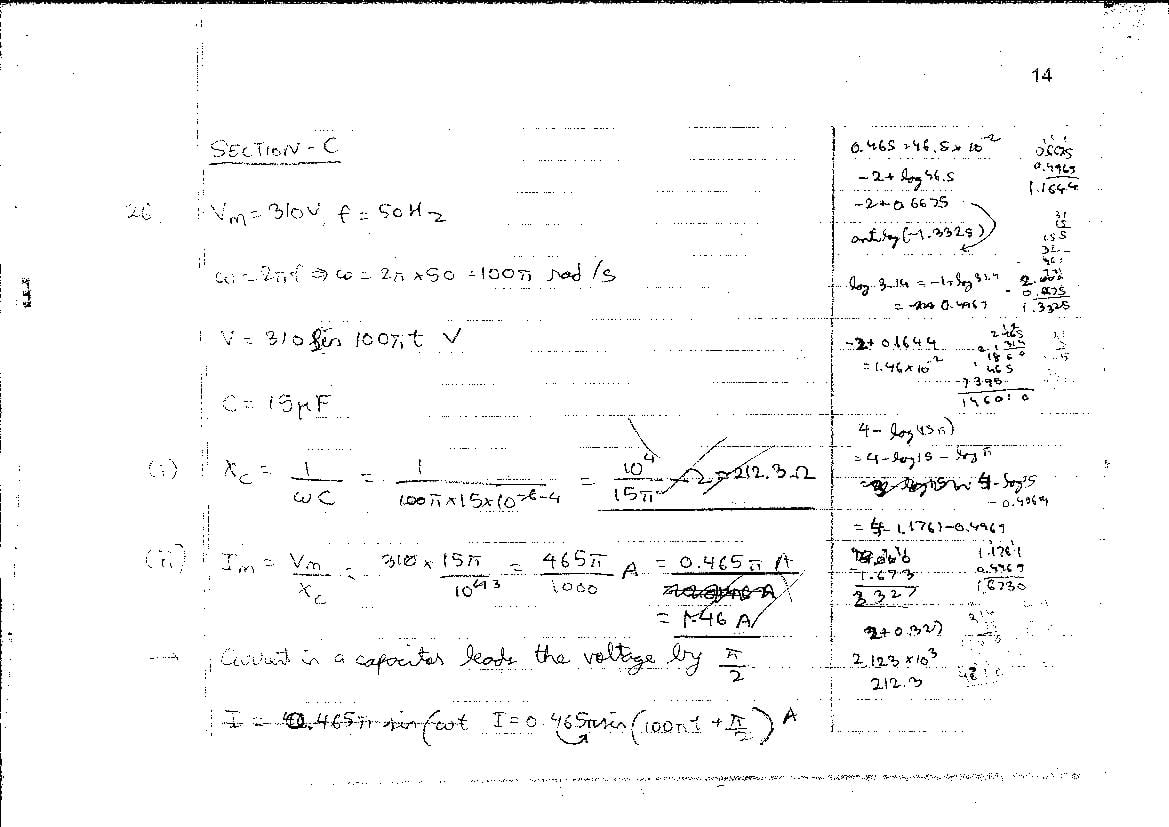 14
SECTION - C
26. Vm = 310V, f = 50Hz
ω = 2πf ⇒ ω = 2π × 50 = 100π rad/s
V = 310 sin 100πt V
C = 15μF
(i) Xc = 1/ωC = 1/(100π × 15 × 10^-6-4) = 10^4/15π Ω = 212.3 Ω
(ii) Im = Vm/Xc = 310 × 15π/10^43 = 465π/1000 A = 0.465π A
= 1.46 A
→ Current in a capacitor leads the voltage by π/2
I = 0.465π sin(ωt I = 0.465π sin(100πt + π/2) A
0.465 = 46.5 × 10^-2
-2 + log 46.5
-2 + 0.6675
antilog(-1.3325)
0.6675
0.4969
1.1644
31
15
155
= 0.4969
0.6675
1.3325
-2 + 0.1644
= 1.46 × 10^-2
465
314
1860
465
1395
146010
4 - log(15π)
= 4 - log15 - logπ
4 - log15
- 0.4969
= 4 - 1.1761 - 0.4969
1.673
2.327
1.1761
0.4969
1.6730
2 + 0.327
2.123 × 10^3
212.3